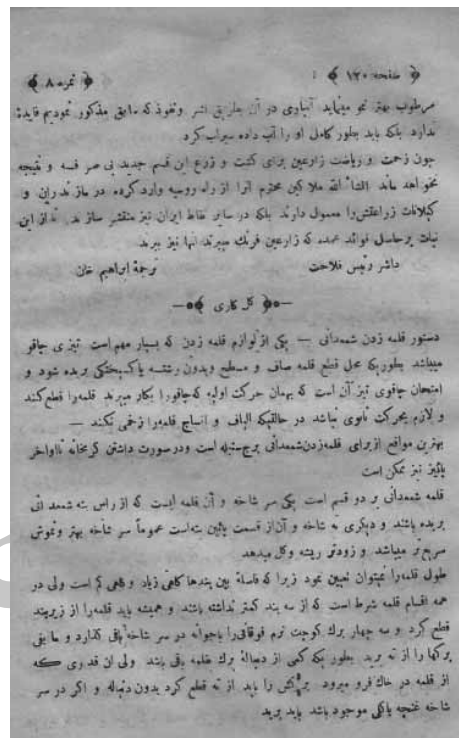 صفحه ۱۲۰ نمره ۸
مرطوب بهتر نمو مینماید آبیاری در آن بطریق نشر ونفوذ که سابق مذکور نمودیم فایده
ندارد بلکه باید بطور کامل او را آب داده سیراب کرد
چون زحمت و ریاضت زارعین برای کشت و زرع این قسم جدید بی صرفه و نتیجه
نخواهد ماند انشاءالله ملاکین محترم آنرا از راه روسیه وارد کرده در مازندران و
گیلانات زراعتش را معمول دارند بلکه در سایر نقاط ایران نیز منتشر سازند تا از این
نبات پرحاصل فوائد عمده که زارعین فرنگ میبرند آنها نیز ببرند
داشر رئیس فلاحت ترجمهٔ ابراهیم خان
گل کاری
دستور قلمه زدن شمعدانی — یکی از لوازم قلمه زدن که بسیار مهم است تیزی چاقو
میباشد بطوریکه محل قطع قلمه صاف و مسطح وبدون رشته یا کسیختکی بریده شود و
امتحان چاقوی تیز آن است که بهمان حرکت اولیه که چاقورا بکار میبرند قلمه را قطع کند
و لازم بحرکت ثانوی نباشد در حالتیکه الیاف و انساج قلمه را زخمی نکند —
بهترین مواقع از برای قلمه زدن شمعدانی برج سنبله است ودر صورت داشتن گرمخانه تا اواخر
پائیز نیز ممکن است
قلمه شمعدانی بر دو قسم است یکی سر شاخه و آن قلمه ایست که از راس بته شمعدانی
بریده باشند و دیگری ته شاخه و آن از قسمت پائین بته است عموماً سر شاخه بهتر ونموش
سریع تر میباشد و زودتر ریشه وکل میدهد
طول قلمه را نمیتوان تعیین نمود زیرا که فاصلهٔ بین بندها کاهی زیاد و کاهی کم است ولی در
همه اقسام قلمه شرط است که از سه بند کمتر نداشته باشند و همیشه باید قلمه را از زیر بند
قطع کرد و سه چهار برك کوچک نرم فوقانی را باجوانه در سر شاخه باقی گذارد و مابقی
برکها را از ته برید بطوریکه کمی از دنبالهٔ برك بقلمه باقی باشد ولی ان قدری که
از قلمه در خاك فرو میرود برکش را باید از ته قطع کرد بدون دنباله و اکر در سر
شاخه غنچه یا کلی موجود باشد باید برید